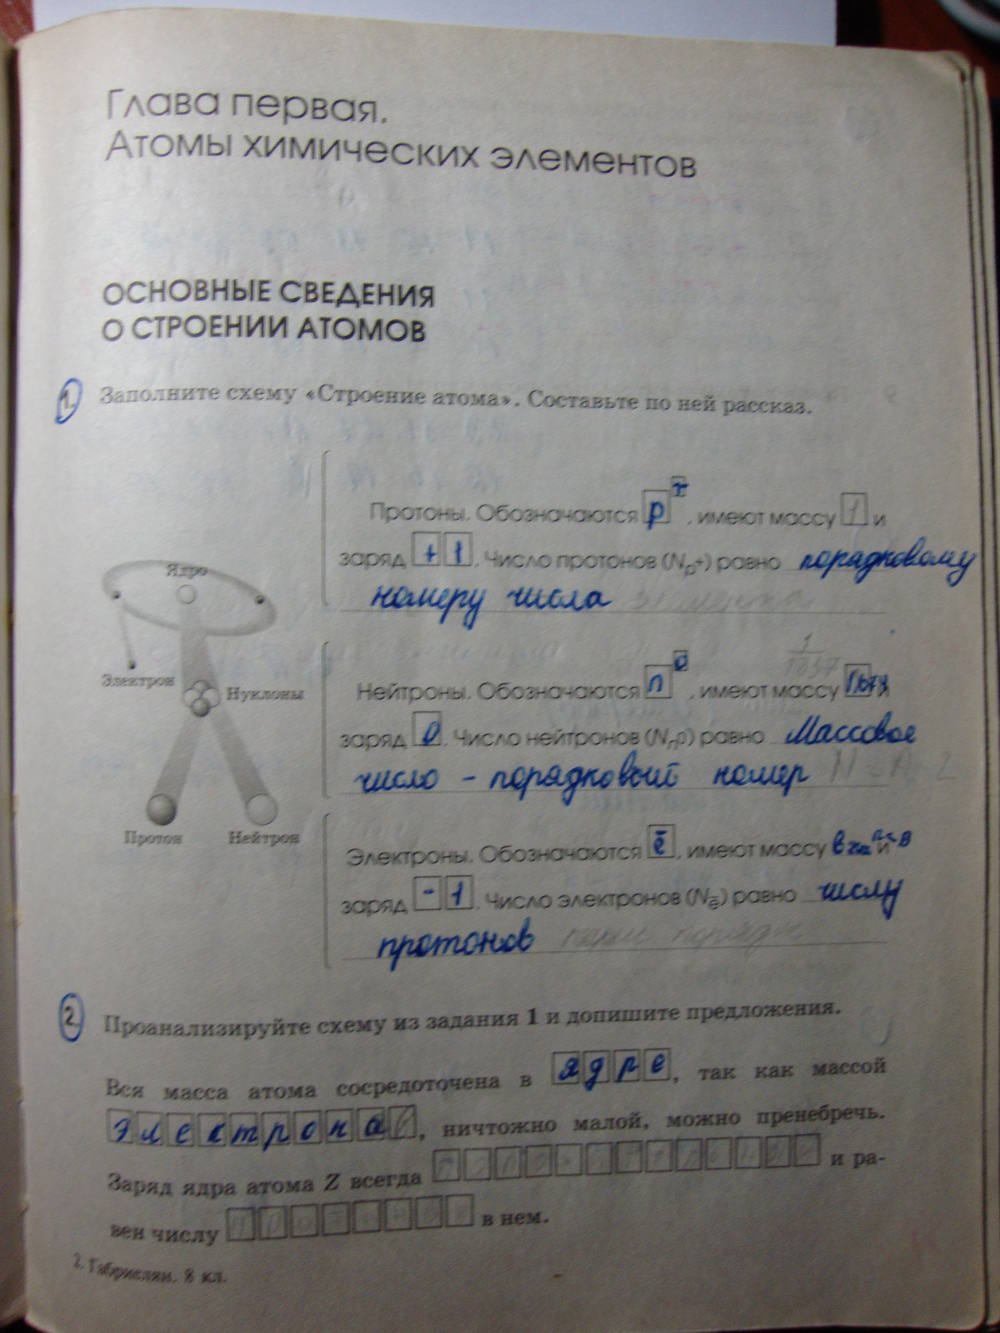 Глава первая.
Атомы химических элементов
ОСНОВНЫЕ СВЕДЕНИЯ
О СТРОЕНИИ АТОМОВ
1. Заполните схему «Строение атома». Составьте по ней рассказ.
Протоны. Обозначаются p+, имеют массу 1 и
заряд +1. Число протонов (Np+) равно порядковому
номеру числа элемента
Ядро
Электрон
Нуклоны
Протон
Нейтрон
Нейтроны. Обозначаются n0, имеют массу
заряд 0. Число нейтронов (Nn0) равно Массовое
число - порядковый номер N = A - Z
Электроны. Обозначаются ē, имеют массу и
заряд -1. Число электронов (Nē) равно числу
протонов
2. Проанализируйте схему из задания 1 и допишите предложения.
Вся масса атома сосредоточена в ядре, так как массой
электрона, ничтожно малой, можно пренебречь.
Заряд ядра атома Z всегда и ра-
вен числу в нем.
2. Габриелян. 8 кл.